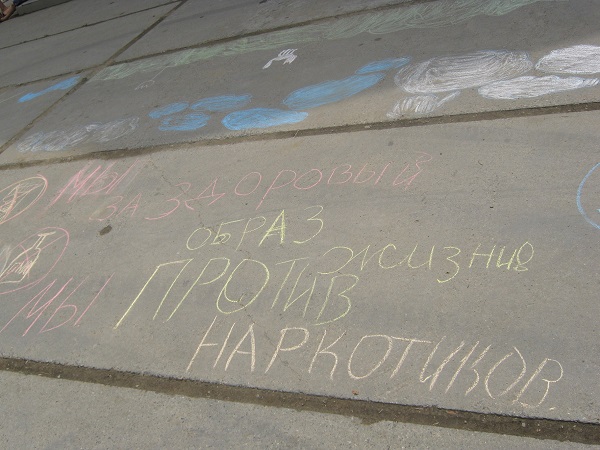 МЫ
ЗА ЗДОРОВЫЙ
ОБРАЗ
ЖИЗНИ
МЫ ПРОТИВ
НАРКОТИКОВ